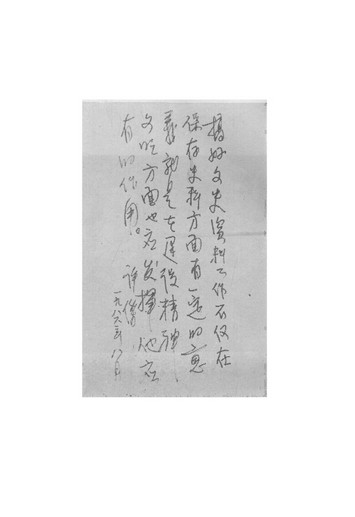 搞好文史资料工作不仅在
保存史料方面有一定的意
义就是在建设精神
文明方面也应发挥他应
有的作用。
一九八六年八月